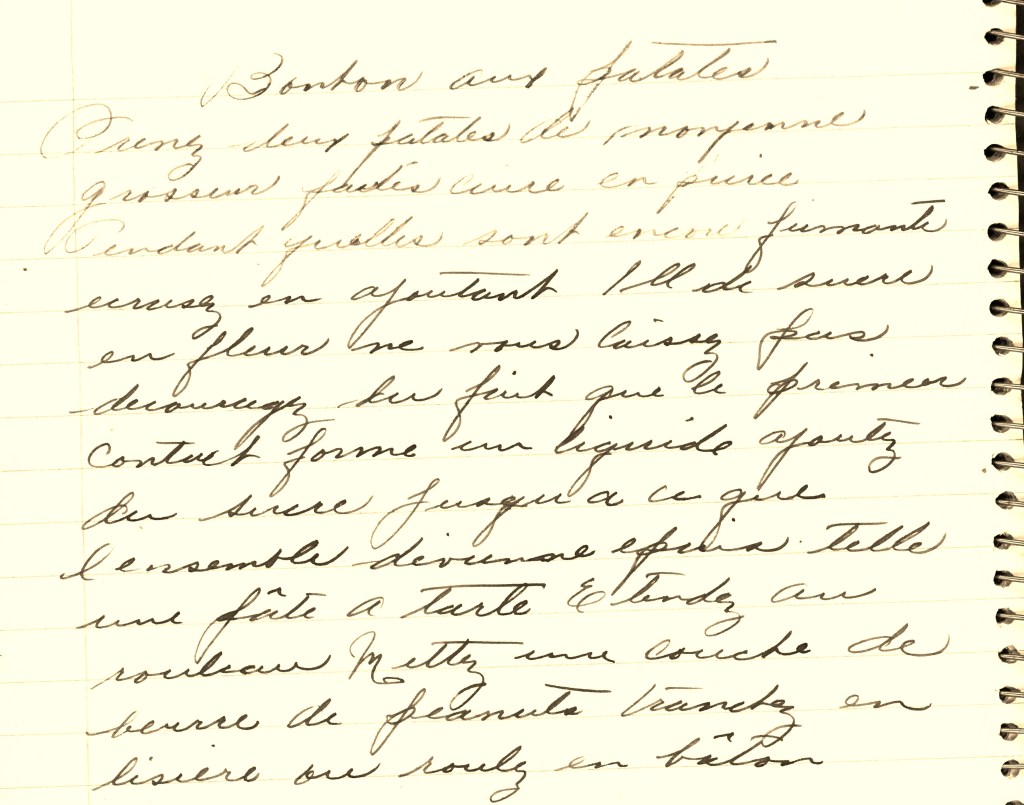 Bonbon aux patates
Prenez deux patates de moyenne
grosseur faites cuire en purée
Pendant quelles sont encore fumante
ecrasez en ajoutant 1 ll de sucre
en fleur ne vous laissez pas
decouragez du fait que le premier
contact forme un liquide ajoutez
du sucre jusqu a ce que
l ensemble devienne epais telle
une pâte a tarte Etendez au
rouleau Mettez une couche de
beurre de peanuts tranchez en
lisiere ou roulez en bâton